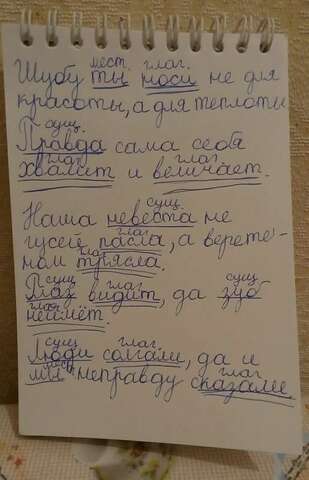 мест. глаг.
Шубу ты носи не для
красоты, а для теплоты
сущ.
Правда сама себя
глаг. глаг.
хвалит и величает.
сущ.
Наша невеста не
глаг.
гусей пасла, а верете-
глаг.
ном трясла.
сущ. глаг. сущ.
Глаз видит, да зуб
глаг.
неймёт.
сущ. глаг.
Люди солгали, да и
мест. глаг.
мы неправду сказали.